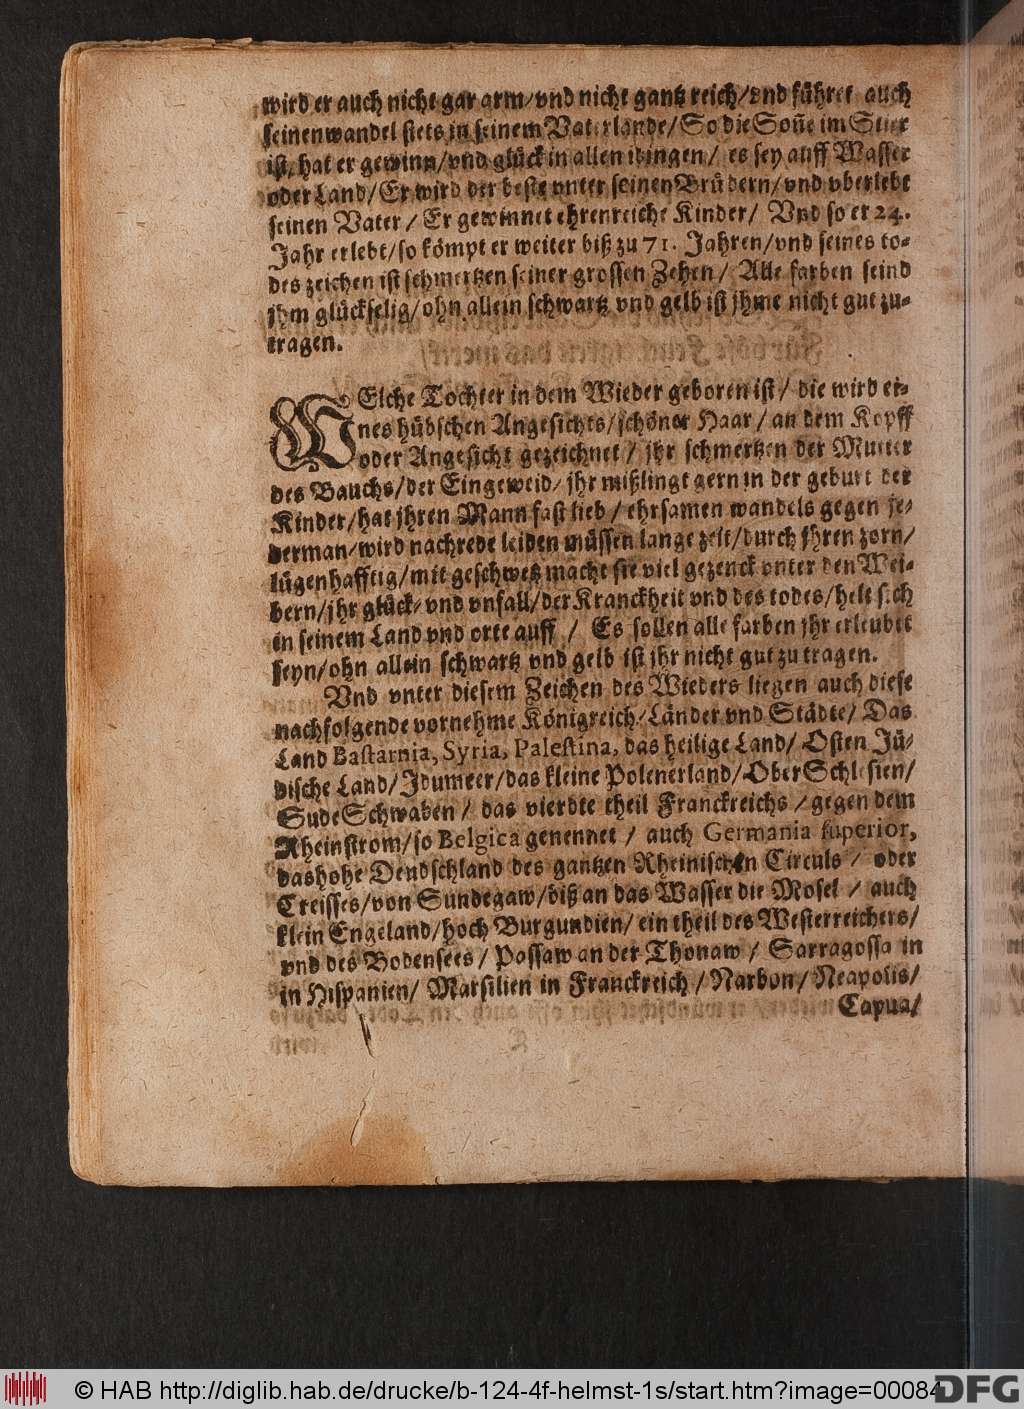 wird er auch nicht gar arm/vnd nicht gantz reich/vnd führet auch
seinen wandel stets in seinem Vaterlande/So die Soñe im Stier
ist, hat er gewinn/vnd glück in allen dingen/ es sey auff Wasser
oder Land/Er wird der beste vnter seinen Brüdern/vnd vberlebt
seinen Vater/ Er gewinnet ehrenreiche Kinder/ Vnd so er 24.
Jahr erlebt/so kömpt er weiter biß zu 71. Jahren/vnd seines to-
des zeichen ist schmertzen seiner grossen Zehen/ Alle farben seind
jhm glückselig/ohn allein schwartz vnd gelb ist jhme nicht gut zu-
tragen.
WElche Tochter in dem Wieder geboren ist/ die wird ei-
nes hübschen Angesichts/schöner Haar/an dem Kopff
oder Angesicht gezeichnet/ jhr schmertzen der Mutter
des Bauchs/der Eingeweid/jhr mißlingt gern in der geburt der
Kinder/hat jhren Mann fast lieb/ ehrsamen wandels gegen je-
derman/wird nachrede leiden müssen lange zeit/durch jhren zorn/
lügenhafftig/mit geschwetz macht sie viel gezenck vnter den Wei-
bern/jhr glück/vnd vnfall/der Kranckheit vnd des todes/helt sich
in seinem Land vnd orte auff/ Es sollen alle farben jhr erleubet
seyn/ohn allein schwartz vnd gelb ist jhr nicht gut zu tragen.
Vnd vnter diesem Zeichen des Wieders liegen auch diese
nachfolgende vornehme Königreich/Länder vnd Städte/ Das
Land Bastarnia, Syria, Palestina, das heilige Land/ Osten Jü-
dische Land/Jdumeer/das kleine Polenerland/Ober Schlesien/
Sude Schwaben/ das vierdte theil Franckreichs/gegen dem
Rheinstrom/so Belgica genennet/ auch Germania superior,
das hohe Deudschland des gantzen Rheinischen Circuls/ oder
Creisses/von Sundegaw/biß an das Wasser die Mosel/ auch
klein Engeland/hoch Burgundien/ ein theil des Westerreichers/
vnd des Bodensees/ Passaw an der Thonaw/ Sarragossa in
in Hispanien/ Marsilien in Franckreich/Narbon/Neapolis/
Capua/
© HAB http://diglib.hab.de/drucke/b-124-4f-helmst-1s/start.htm?image=00084
DFG